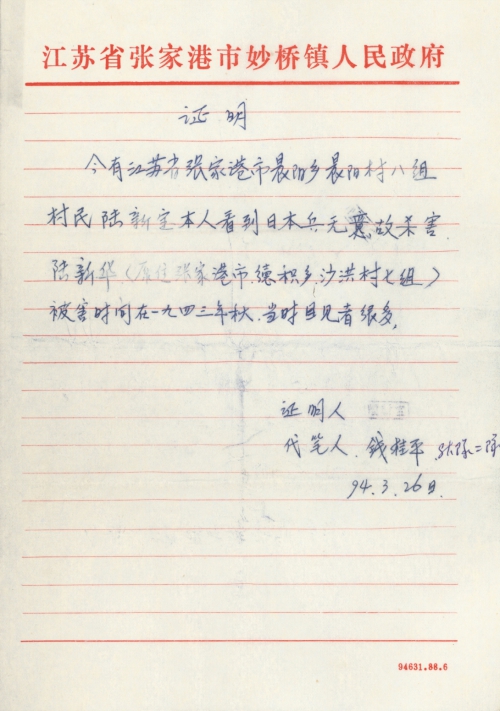 江苏省张家港市妙桥镇人民政府
证明
今有江苏省张家港市晨阳乡晨阳村八组
村民陆新定本人看到日本兵无故杀害
陆新华（原住张家港市德积乡沙洪村七组）
被害时间在一九四三年秋.当时目见者很多,
证明人
代笔人.钱桂平
94.3.26日.
94631.88.6